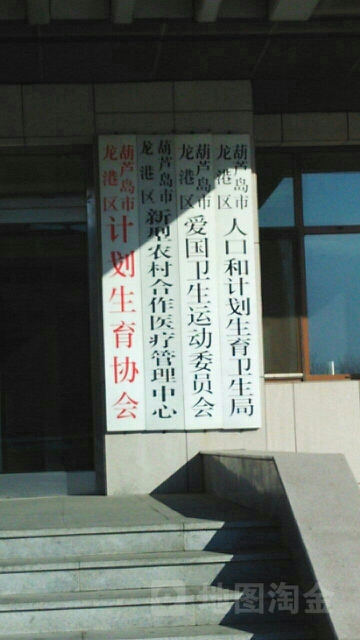 葫芦岛市龙港区人口和计划生育卫生局
葫芦岛市龙港区爱国卫生运动委员会
葫芦岛市龙港区新型农村合作医疗管理中心
葫芦岛市龙港区计划生育协会
地图淘金